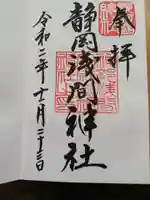 奉拝
静岡浅間神社
令和二年十一月二十三日